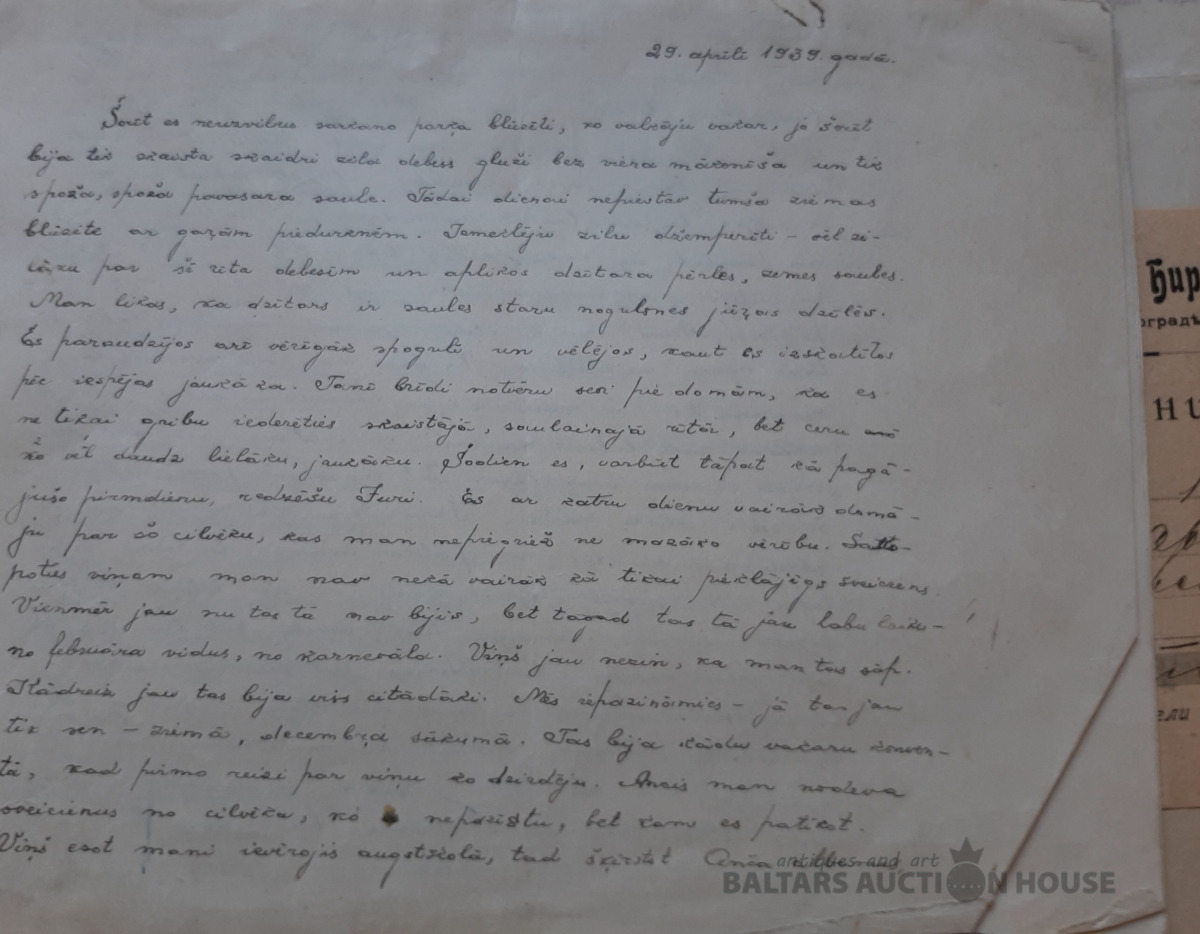 29. aprīlī 1939. gadā.
Šorīt es neuzvilkus sarkano parķa blūzīti, ko valkāju vakar, jo šorīt
bija tik skaista skaidri zila debess gluži bez viena mākonīša un tik
spoža, spoža pavasara saule. Tādai dienai nepiestāv tumša ziemas
blūzīte ar gaŗām piedurknēm. Izmeklēju zilu džemperīti – vēl zi-
lāku par šī rīta debesīm un apliku dzītara pērles, zemes saules.
Man likās, ka dzītars ir saules staru nogulsnes jūŗas dzelmēs.
Es paraudzījos arī vērīgāk spogulī un vēlējos, kaut es izskatītos
pēc iespējas jaukāka. Tanī brīdī notvēru sevi pie domām, ka es
ne tikai gribu iederēties skaistājā, saulainajā rītā, bet ceru
ko vēl daudz lielāku, jaukāku. Šodien es, varbūt tāpat kā pagā-
jušo pirmdienu, redzēšu Juri. Es ar katru dienu vairāk domā-
ju par šo cilvēku, kas man nepiegriež ne mazāko vērību. Satto-
poties viņam man nav nekā vairāk kā tikai pieklājīgs sveiciens.
Vienmēr jau nu tas tā nav bijis, bet tagad tas tā jau labu laiku –
no februāra vidus, no karnevāla. Viņš jau nezin, ka man tas sāp.
Kādreiz jau tas bija viss citādāki. Mēs iepazināmies – jā tas jau
tik sen – ziemā, decembŗa sākumā. Tas bija kādu vakaru konven-
tā, kad pirmo reizi par viņu ko dzirdēju. Ansis man nodeva
sveicienus no cilvēka, ko nepazīstu, bet kam es patīkot.
Viņš esot mani ievērojis augstskolā, tad šķirstot
antiques and art
BALTARS AUCTION HOUSE
Кир
оградъ
НИ
ели